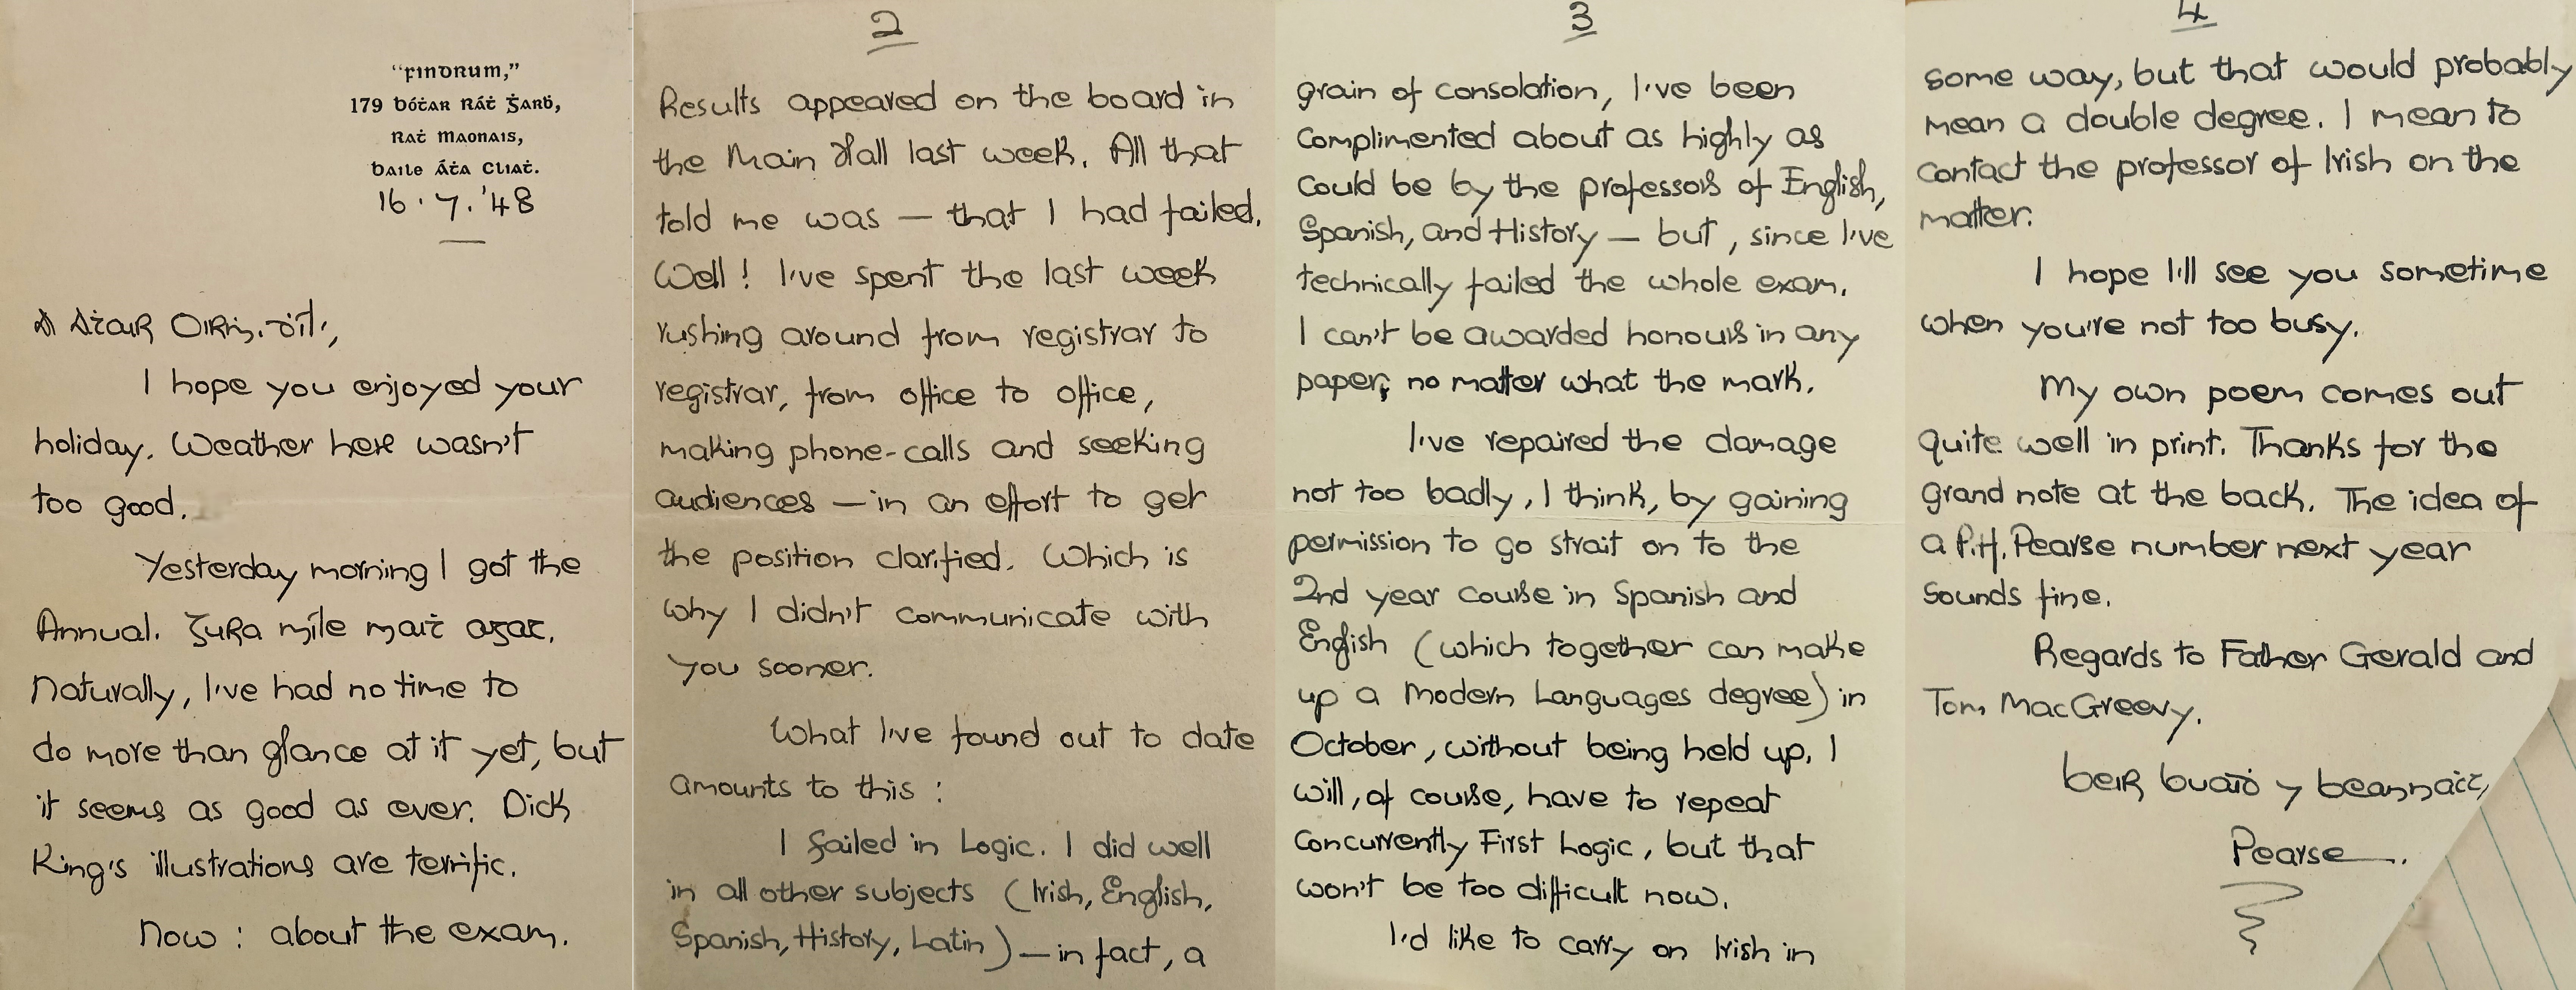 "Findrum,"
179 Bóṫar Ráṫ Ġarḃ,
Raṫ Maonais,
Baile Áṫa Cliaṫ.
16.7.'48
A Aṫair Oirm. ḋil,
I hope you enjoyed your
holiday. Weather here wasn't
too good.
Yesterday morning I got the
Annual. Gura míle maiṫ agat.
Naturally, I've had no time to
do more than glance at it yet, but
it seems as good as ever. Dick
King's illustrations are terrific.
Now : about the exam.
2
Results appeared on the board in
the Main Hall last week. All that
told me was — that I had failed.
Well! I've spent the last week
rushing around from registrar to
registrar, from office to office,
making phone-calls and seeking
audiences — in an effort to get
the position clarified. Which is
why I didn't communicate with
you sooner.
What I've found out to date
amounts to this :
I failed in Logic. I did well
in all other subjects (Irish, English,
Spanish, History, Latin) — in fact, a
3
grain of consolation, I've been
complimented about as highly as
could be by the professors of English,
Spanish, and History — but, since I've
technically failed the whole exam.
I can't be awarded honours in any
paper, no matter what the mark.
I've repaired the damage
not too badly, I think, by gaining
permission to go strait on to the
2nd year course in Spanish and
English (which together can make
up a Modern Languages degree) in
October, without being held up. I
will, of course, have to repeat
concurrently First Logic, but that
won't be too difficult now.
I'd like to carry on Irish in
4
some way, but that would probably
mean a double degree. I mean to
contact the professor of Irish on the
matter.
I hope I'll see you sometime
when you're not too busy.
My own poem comes out
quite well in print. Thanks for the
grand note at the back. The idea of
a P.H. Pearse number next year
sounds fine.
Regards to Father Gerald and
Tom MacGreevy.
Beir buaiḋ ⁊ beannaċt,
Pearse.